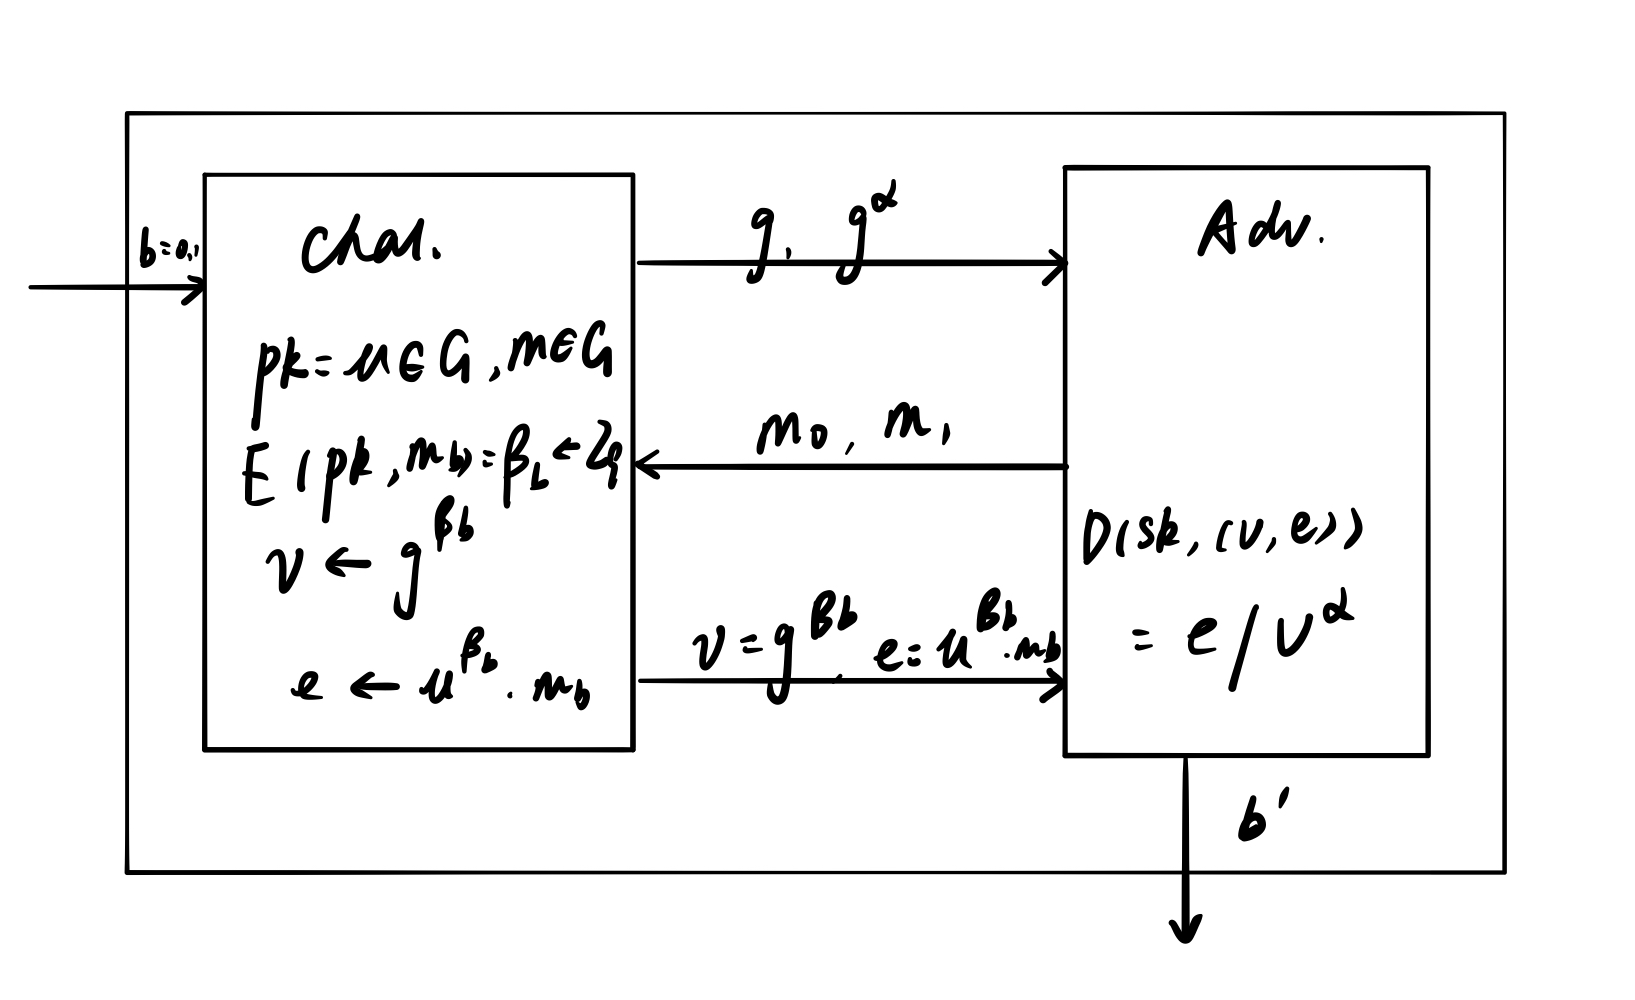 b=0,1
Chal.
pk=u∈G, m∈G
E(pk, m_b)=β_b←Z_q
v←g^{β_b}
e←u^{β_b}·m_b
g, g^α
m_0, m_1
v=g^{β_b}, e=u^{β_b}·m_b
Adv.
D(sk, (v, e))
=e/v^α
b'